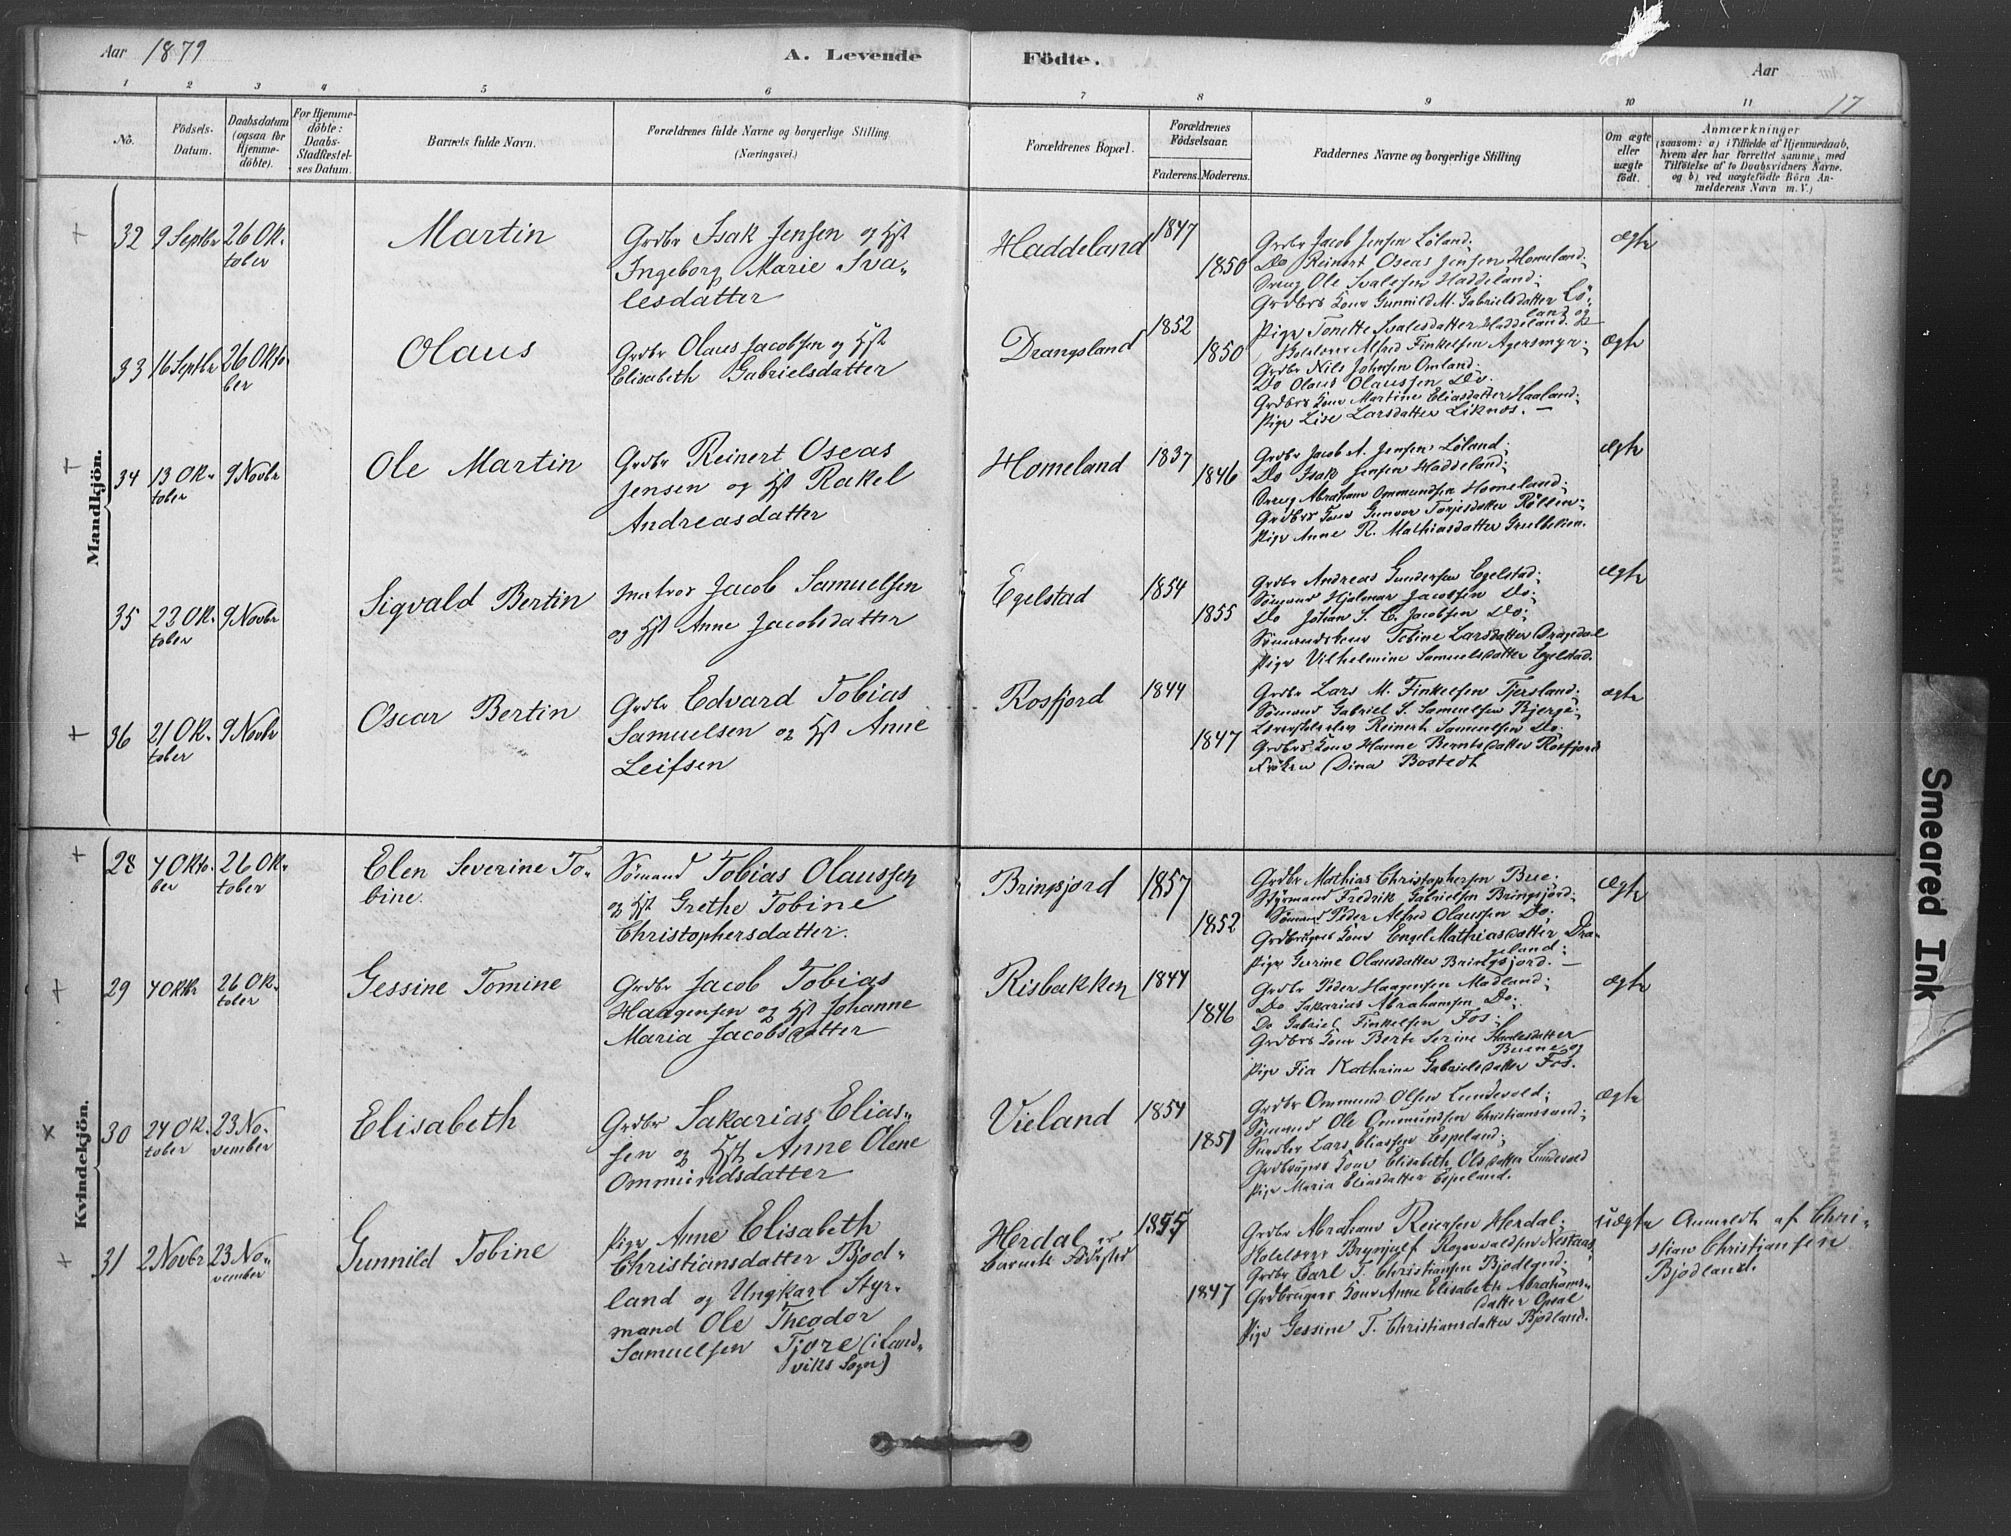 Aar 1879
A. Levende Födte.
Aar
17
1 2 3 4 5 6 7 8 9 10 11
No.
Födsels-Datum.
Daabsdatum (ogsaa for Hjemmedöbte).
For Hjemmedöbte: Daabs-Stadfæstelses Datum.
Barnets fulde Navn.
Forældrenes fulde Navne og borgerlige Stilling.
(Næringsvei.)
Forældrenes Bopæl.
Forældrenes Födselsaar.
Faderens. Moderens.
Faddernes Navne og borgerlige Stilling
Om ægte eller uægte födt.
Anmærkninger
(saasom: a) i Tilfælde af Hjemmedaab,
hvem der har forrettet samme, med
Tilföielse af to Daabsvidners Navne.
og b) ved uægtefödte Börn An-
melderens Navn m. V.)
Mandkjön.
32 9 Septbr 26 Ok-
tober
Martin
Grdbr Isak Jensen og Hst
Ingeborg Marie Iva-
lesdatter
Haddeland
1847
1850
Grdbr Jacob Jensen Löland;
Do Reinert Oseas Jensen Homeland;
Dreng Ole Ivalesen Haddeland;
Grdbrs Kone Gunnild M. Gabrielsdatter Lö-
land og
Pige Tonette Ivalesdatter Haddeland.
ægte
33 16 Septbr 26 Okto-
ber
Olaus
Grdbr Olaus Jacobsen og Hst
Elisabeth Gabrielsdatter
Drangsland
1852
1850
Alfred Finkelsen Agersmyr;
Grdbr Nils Johnsen Omland;
Do Olaus Olaussen Do.
Grdbrs Kone Martine Eliasdatter Haaland;
Pige Lise Larsdatter Liknes. —
ægte
34 13 Ok-
tober
9 Novbr
Ole Martin
Grdbr Reinert Oseas
Jensen og Hst Rakel
Andreasdatter
Homeland
1837
1846
Grdbr Jacob A. Jensen Löland;
Do Isak Jensen Haddeland;
Dreng Abraham Ommundsen Homeland;
Grdbrs Kone Gunvor Torjesdatter
Pige Anne R. Mathiasdatter
ægte
35 22 Ok-
tober
9 Novbr
Sigvald Bertin
Matros Jacob Samuelsen
og Hst Anne Jacobsdatter
Egelstad
1854
1855
Grdbr Andreas Gundersen Egelstad;
Sömand Hjalmar Jacobsen Do;
Do Johan S. C. Jacobsen Do;
Sömandskone Tobine Larsdatter Dragedal
Pige Vilhelmine Samuelsdatter Egelstad.
ægte
36 21 Ok-
tober
9 Novbr
Oscar Bertin
Grdbr Edvard Tobias
Samuelsen og Hst Anne
Leifsen
Rosfjord
1844
1847
Grdbr Lars M. Finkelsen Tjersland;
Sömand Gabriel S. Samuelsen Bjerge;
Reinert Samuelsen Do;
Grdbrs Kone Hanne Berntsdatter Rosfjord
Fröken Dina Bostedt
ægte
Kvindekjön.
28 7 Okto-
ber
26 Ok-
tober
Elen Severine To-
bine.
Sömand Tobias Olaussen
og Hst Grethe Tobine
Christophersdatter.
Bringsjord
1857
1852
Grdbr Mathias Christophersen Bue;
Styrmand Fredrik Gabrielsen Bringsjord;
Sömand Peder Alfred Olaussen Do;
Grdbrugers Kone Engel Mathiasdatter Dra-
geland;
Pige Gurine Olausdatter Bringsjord. —
ægte
29 7 Oktr 26 Ok-
tober
Gessine Tomine
Grdbr Jacob Tobias
Haagensen og Hst Johanne
Maria Jacobsdatter
Risbakken
1844
1846
Grdbr Peder Haagensen Mödland;
Do Sakarias Abrahamsen Do;
Do Gabriel Finkelsen Fos;
Grdbrs Kone Berte Serine
Buene og
Pige Fia Kathrine Gabrielsdatter Fos.
ægte
30 24 Ok-
tober
23 No-
vember
Elisabeth
Grdbr Sakarias Elias-
sen og Hst Anne Olene
Ommundsdatter
Vieland
1854
1851
Grdbr Ommund Olsen Lundevold;
Sömand Ole Ommundsen Christianssand;
Lars Eliassen Espeland;
Grdbrugers Kone Elisabeth Olsdatter Lundevold
Pige Maria Eliasdatter Espeland.
ægte
31 2 Novbr 23 No-
vember
Gunnild Tobine
Pige Anne Elisabeth
Christiansdatter Bjöd-
land og Ungkarl Styr-
mand Ole Theodor
Samuelsen Tjore (i Land-
viks Sogn)
Herdal er
barnets Födested
1855
1847
Grdbr Abraham Reiersen Herdal;
Brynjulf Rognvaldsen Nestaas;
Grdbr Carl T. Christiansen Bjödland;
Grdbrugers Kone Anne Elisabeth Abrahams-
datter Opsal
Pige Gessine T. Christiansdatter Bjödland.
uægte
Anmeldt af Chri-
stian Christiansen
Bjödland.
Smeared Ink